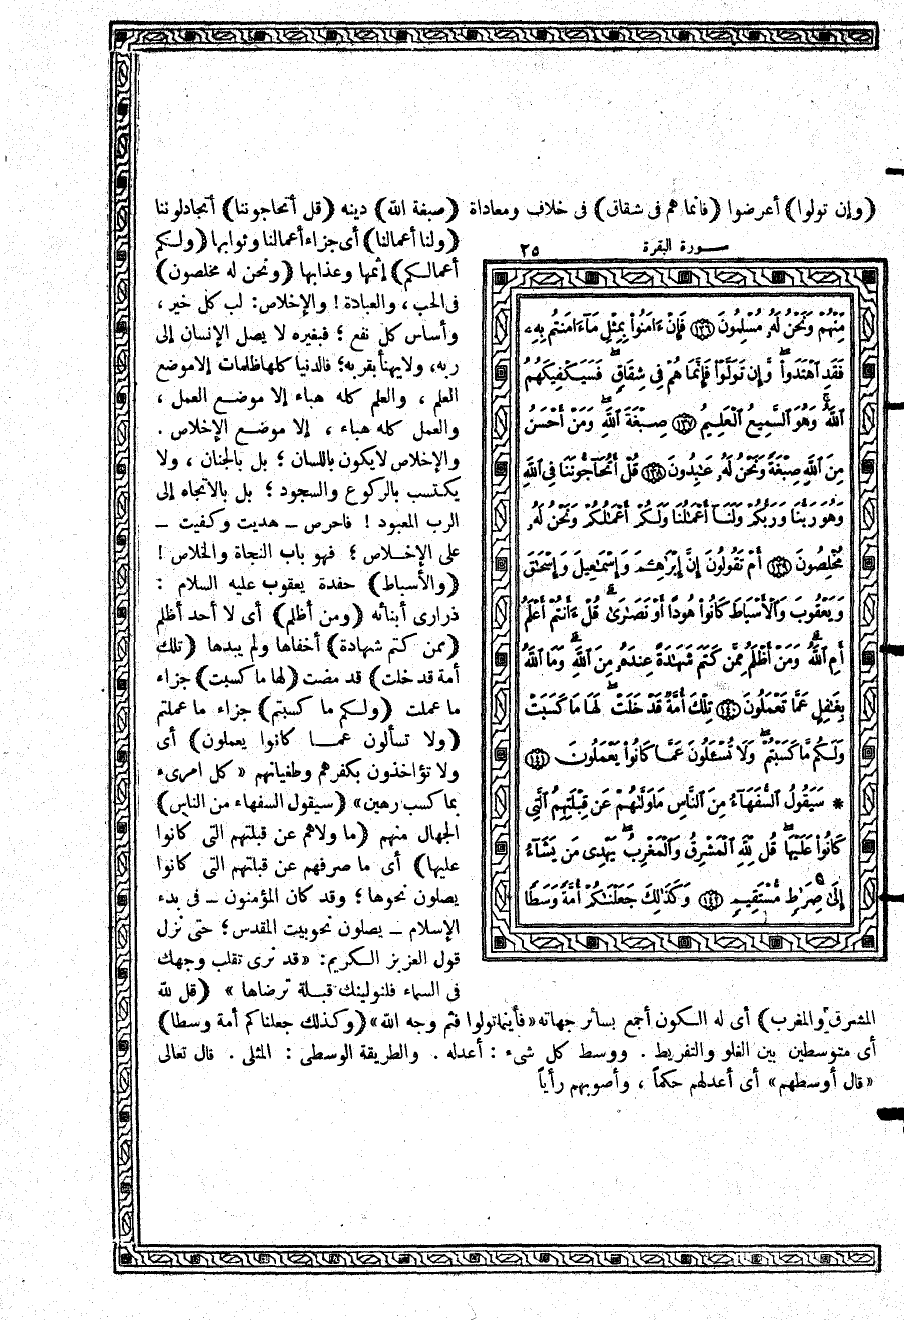 (وإن تولوا) أعرضوا (فانما هم فى شقاق) فى خلاف ومعاداة (صبغة الله) دينه (قل أتحاجوننا) أتجادلوننا
(ولنا أعمالنا) أى جزاء أعمالنا وثوابها (ولكم
أعمالكم) إثمها وعذابها (ونحن له مخلصون)
فى الحب، والعبادة! والإخلاص: لب كل خير،
وأساس كل نفع؛ فبغيره لا يصل الإنسان إلى
ربه، ولا يهنأ بقربه؛ فالدنيا كلها ظلمات إلا موضع
العلم، والعلم كله هباء إلا موضع العمل،
والعمل كله هباء، إلا موضع الإخلاص.
والإخلاص لا يكون باللسان؛ بل بالجنان، ولا
يكتسب بالركوع والسجود؛ بل بالاتجاه إلى
الرب المعبود! فاحرص ـ هديت وكفيت ـ
على الإخلاص؛ فهو باب النجاة والخلاص!
(والأسباط) حفدة يعقوب عليه السلام:
ذرارى أبنائه (ومن أظلم) أى لا أحد أظلم
(ممن كتم شهادة) أخفاها ولم يبدها (تلك
أمة قد خلت) قد مضت (لها ما كسبت) جزاء
ما عملت (ولكم ما كسبتم) جزاء ما عملتم
(ولا تسألون عما كانوا يعملون) أى
ولا تؤاخذون بكفرهم وطغيانهم «كل امرىء
بما كسب رهين» (سيقول السفهاء من الناس)
الجهال منهم (ما ولاهم عن قبلتهم التى كانوا
عليها) أى ما صرفهم عن قبلتهم التى كانوا
يصلون نحوها؛ وقد كان المؤمنون ـ فى بدء
الإسلام ـ يصلون نحو بيت المقدس؛ حتى نزل
قول العزيز الكريم: «قد نرى تقلب وجهك
فى السماء فلنولينك قبلة ترضاها» (قل لله
سورة البقرة ٢٥
مِنْهُمْ وَنَحْنُ لَهُ مُسْلِمُونَ ﴿١٣٦﴾ فَإِنْ ءَامَنُوا۟ بِمِثْلِ مَآ ءَامَنتُم بِهِۦ
فَقَدِ ٱهْتَدَوا۟ۖ وَّإِن تَوَلَّوْا۟ فَإِنَّمَا هُمْ فِى شِقَاقٍۖ فَسَيَكْفِيكَهُمُ
ٱللَّهُۚ وَهُوَ ٱلسَّمِيعُ ٱلْعَلِيمُ ﴿١٣٧﴾ صِبْغَةَ ٱللَّهِۖ وَمَنْ أَحْسَنُ
مِنَ ٱللَّهِ صِبْغَةً وَنَحْنُ لَهُ عَـٰبِدُونَ ﴿١٣٨﴾ قُلْ أَتُحَآجُّونَنَا فِى ٱللَّهِ
وَهُوَ رَبُّنَا وَرَبُّكُمْ وَلَنَآ أَعْمَـٰلُنَا وَلَكُمْ أَعْمَـٰلُكُمْ وَنَحْنُ لَهُ
مُخْلِصُونَ ﴿١٣٩﴾ أَمْ تَقُولُونَ إِنَّ إِبْرَٰهِـۧمَ وَإِسْمَـٰعِيلَ وَإِسْحَـٰقَ
وَيَعْقُوبَ وَٱلْأَسْبَاطَ كَانُوا۟ هُودًا أَوْ نَصَـٰرَىٰۗ قُلْ ءَأَنتُمْ أَعْلَمُ
أَمِ ٱللَّهُۗ وَمَنْ أَظْلَمُ مِمَّن كَتَمَ شَهَـٰدَةً عِندَهُ مِنَ ٱللَّهِۗ وَمَا ٱللَّهُ
بِغَـٰفِلٍ عَمَّا تَعْمَلُونَ ﴿١٤٠﴾ تِلْكَ أُمَّةٌ قَدْ خَلَتْۖ لَهَا مَا كَسَبَتْ
وَلَكُم مَّا كَسَبْتُمْۖ وَلَا تُسْـَٔلُونَ عَمَّا كَانُوا۟ يَعْمَلُونَ ﴿١٤١﴾
* سَيَقُولُ ٱلسُّفَهَآءُ مِنَ ٱلنَّاسِ مَا وَلَّىٰهُمْ عَن قِبْلَتِهِمُ ٱلَّتِى
كَانُوا۟ عَلَيْهَاۚ قُل لِّلَّهِ ٱلْمَشْرِقُ وَٱلْمَغْرِبُۚ يَهْدِى مَن يَشَآءُ
إِلَىٰ صِرَٰطٍ مُّسْتَقِيمٍ ﴿١٤٢﴾ وَكَذَٰلِكَ جَعَلْنَـٰكُمْ أُمَّةً وَسَطًا
المشرق والمغرب) أى له الكون أجمع بسائر جهاته «فأينما تولوا فثم وجه الله» (وكذلك جعلناكم أمة وسطا)
أى متوسطين بين الغلو والتفريط. ووسط كل شىء: أعدله. والطريقة الوسطى: المثلى. قال تعالى
«قال أوسطهم» أى أعدلهم حكماً، وأصوبهم رأياً